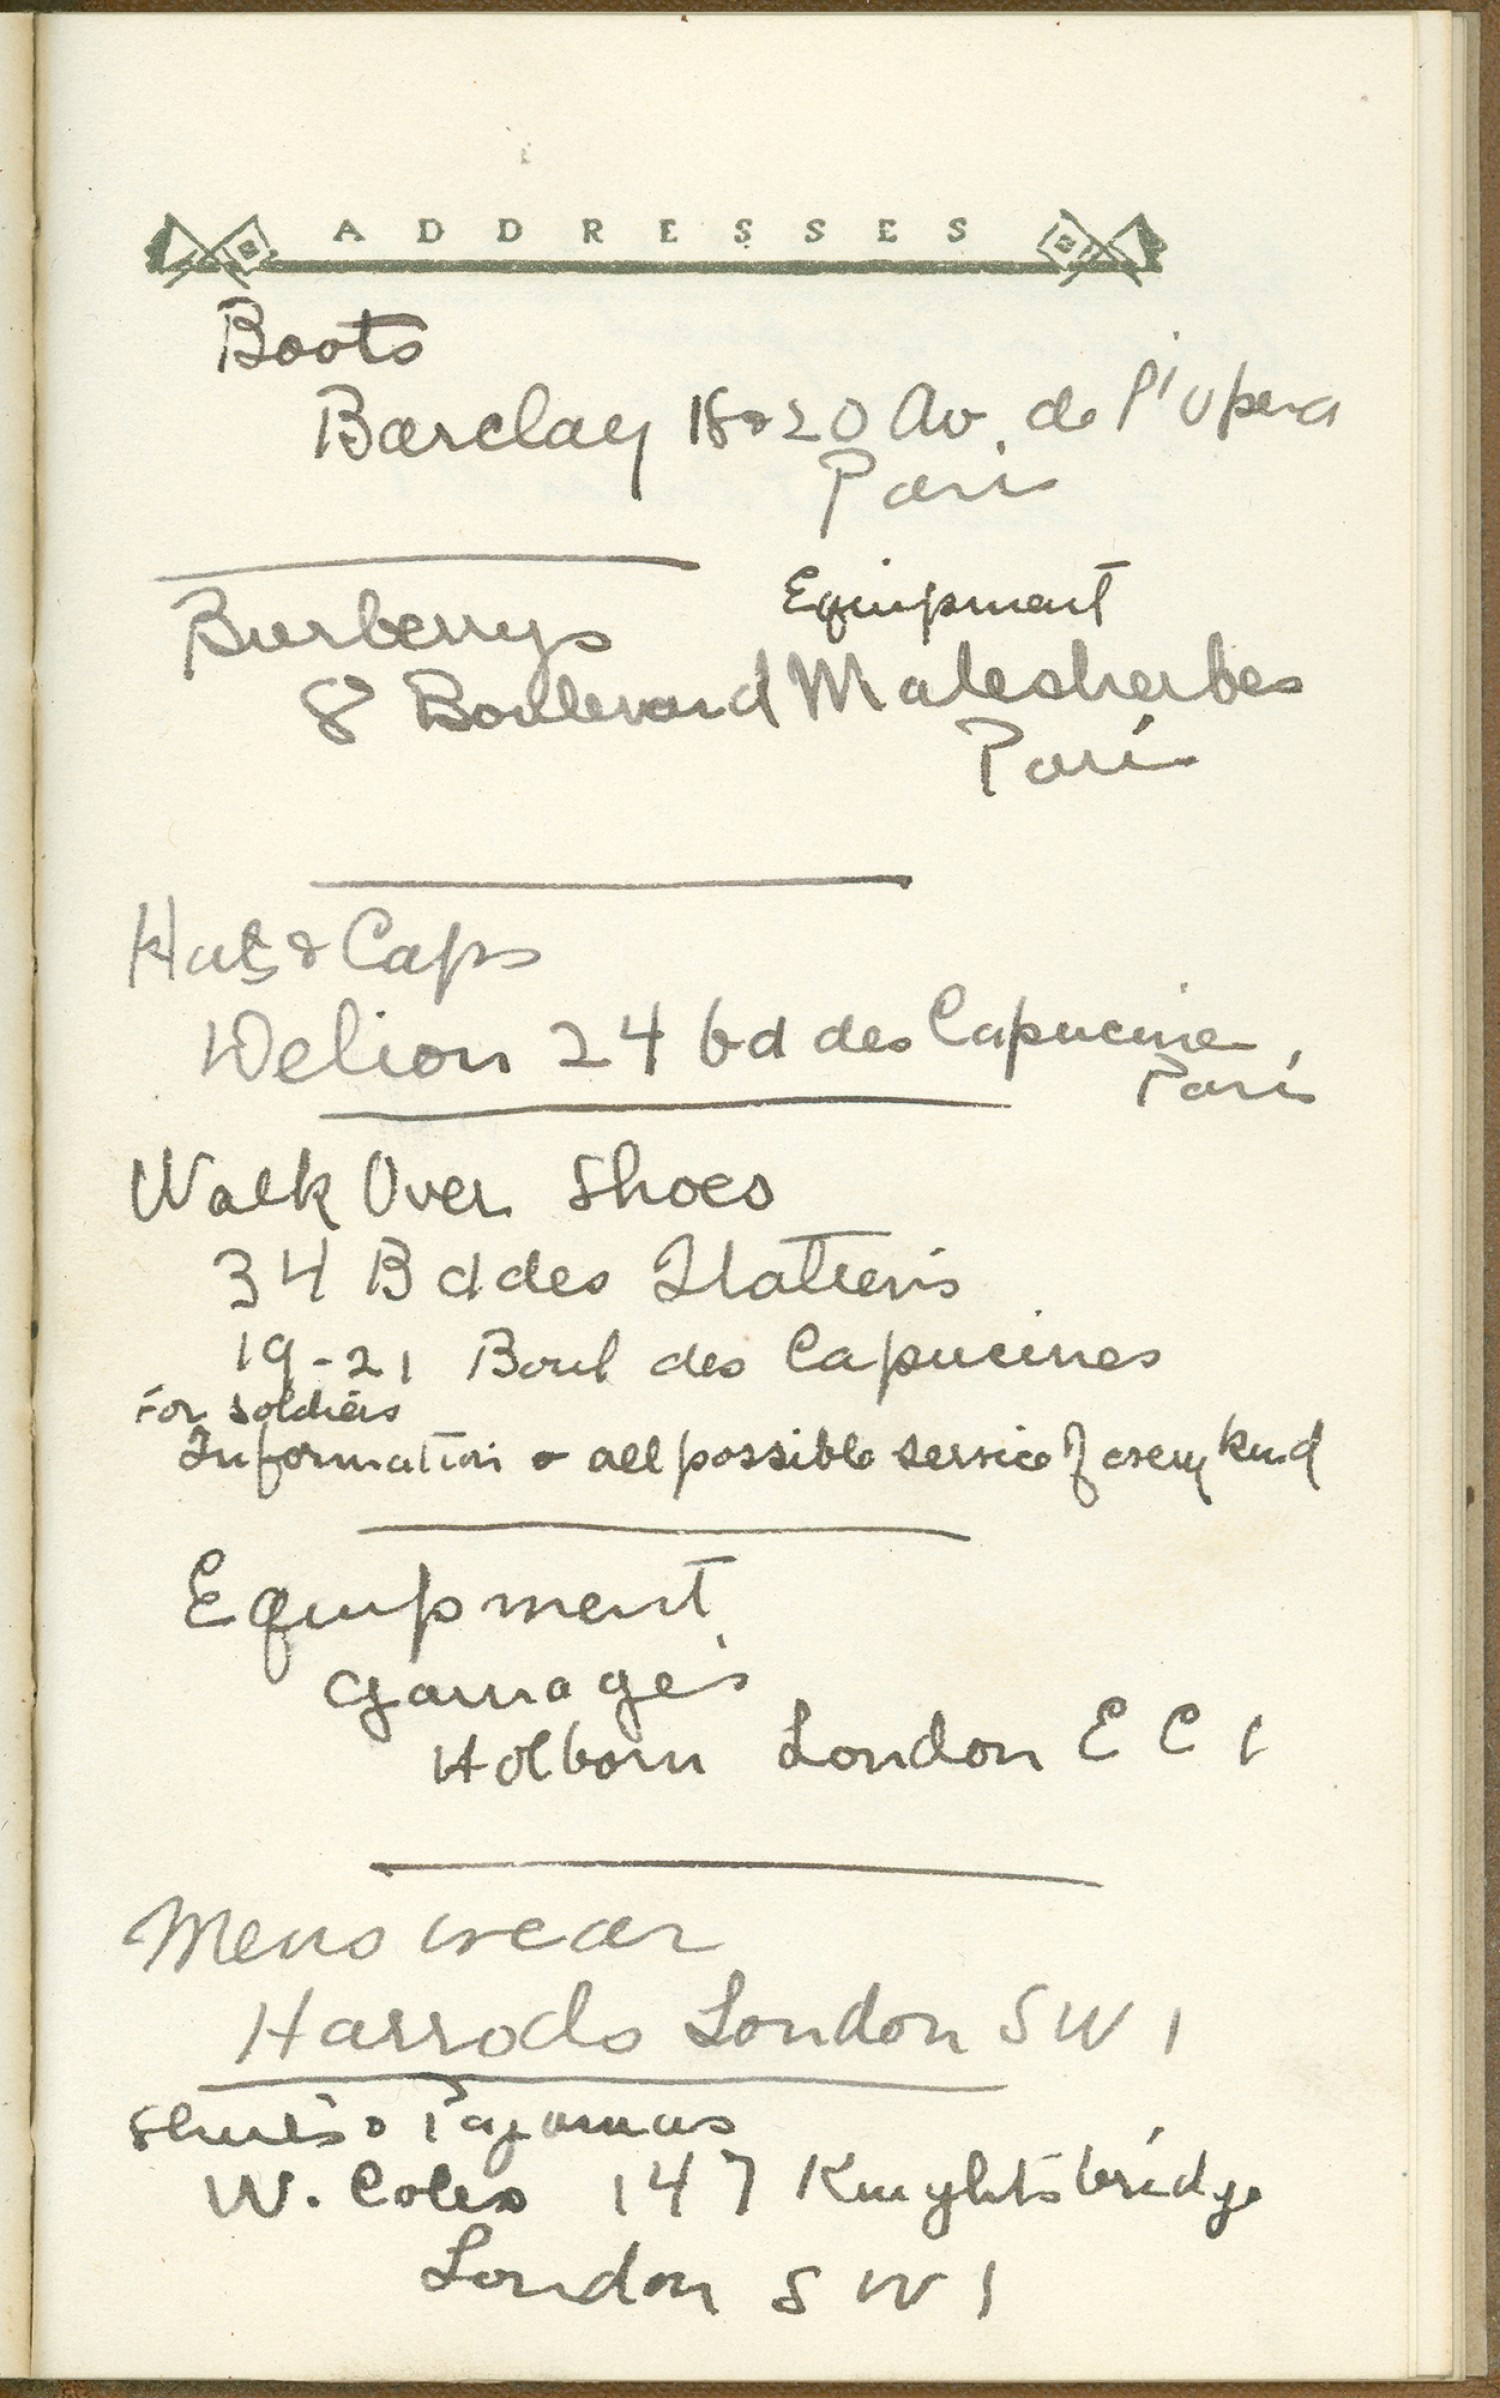 ADDRESSES
Boots
Barclay 18 & 20 Av. de l'Opera
Paris
Burberrys Equipment
8 Boulevard Malesherbes
Paris
Hats & Caps
Delion 24 bd des Capucine,
Paris
Walk Over Shoes
34 Bd des Italiens
19-21 Boul des Capucines
For soldiers
Information & all possible service of every kind
Equipment
Gamage's
Holborn London E C 1
Mens wear
Harrods London S W 1
Shirts & Pajamas
W. Coles 147 Knightsbridge
London S W 1